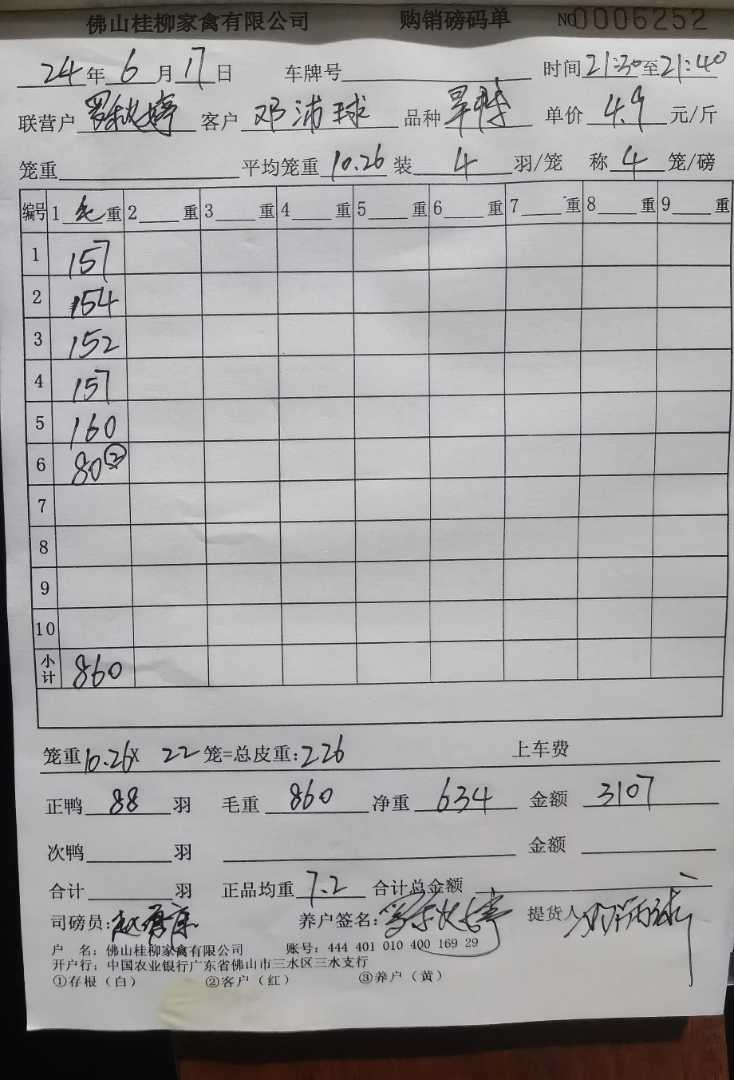 佛山桂柳家禽有限公司 购销磅码单 NO0006252
24年6月17日 车牌号 时间21:30至21:40
联营户 罗秋婷 客户 邓沛球 品种 单价 4.9 元/斤
笼重 平均笼重 10.26 装 4 羽/笼 称 4 笼/磅
编号 1 毛 重 2 重 3 重 4 重 5 重 6 重 7 重 8 重 9 重
1 157
2 154
3 152
4 157
5 160
6 80②
7
8
9
10
小计 860
笼重10.26X 22 笼=总皮重:226 上车费
正鸭 88 羽 毛重 860 净重 634 金额 3107
次鸭 羽 金额
合计 羽 正品均重 7.2 合计总金额
司磅员: 养户签名:罗秋婷 提货人
户 名:佛山桂柳家禽有限公司 账号:444 401 010 400 169 29
开户行:中国农业银行广东省佛山市三水区三水支行
①存根(白) ②客户(红) ③养户(黄)